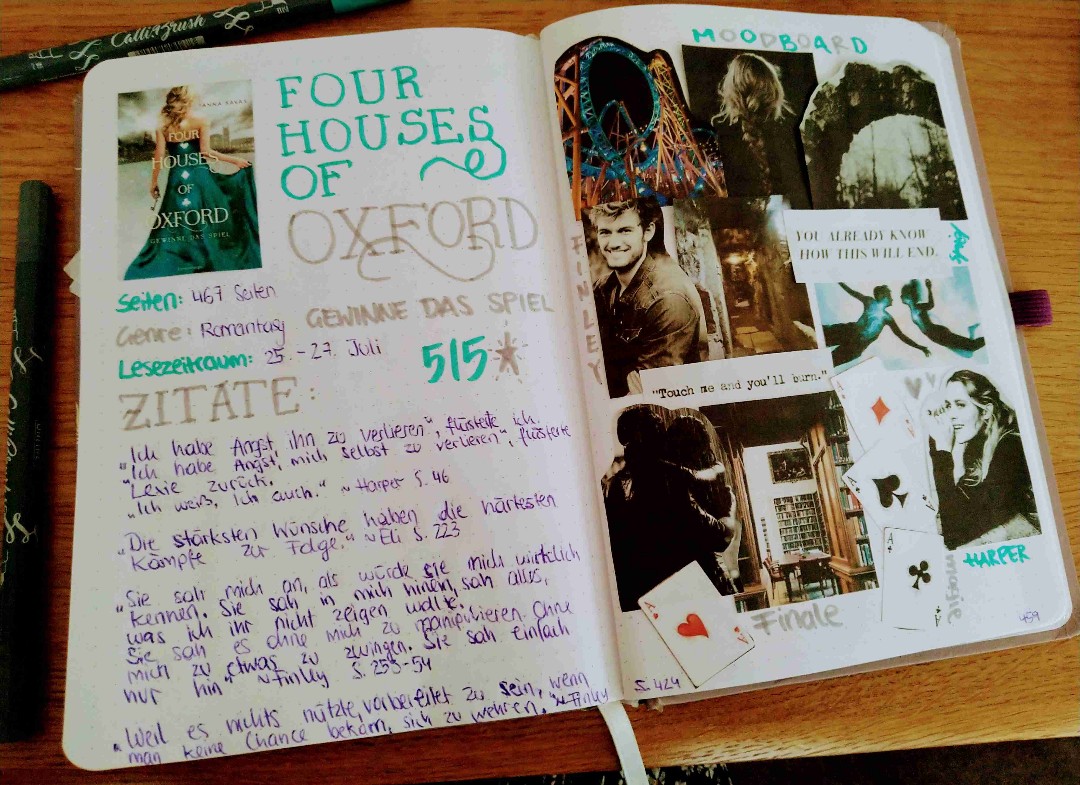 CalliBrush
ANNA SAVAS
FOUR
HOUSES
OF
OXFORD
GEWINNE DAS SPIEL
FOUR
HOUSES
OF
OXFORD
GEWINNE DAS SPIEL
Seiten: 467 Seiten
Genre: Romantasy
Lesezeitraum: 25.-27. Juli
5/5
ZITATE:
"Ich habe Angst, ihn zu verlieren", flüsterte ich.
"Ich habe Angst, mich selbst zu verlieren", flüsterte
Lexie zurück.
"Ich weiß, Ich auch." ~ Harper S. 46
"Die stärksten Wünsche haben die härtesten
Kämpfe zur Folge." ~ Eli S. 223
"Sie sah mich an, als würde sie mich wirklich
kennen. Sie sah in mich hinein, sah alles,
was ich ihr nicht zeigen wollte.
Sie sah es ohne mich zu manipulieren. Ohne
mich zu etwas zu zwingen. Sie sah einfach
nur hin" ~ Finley S. 253-54
"Weil es nichts nützte, vorbereitet zu sein, wenn
man keine Chance bekam, sich zu wehren." ~ Finley
S. 424
MOODBOARD
FINLEY
YOU ALREADY KNOW
HOW THIS WILL END.
"Touch me and you'll burn."
A
A
A
A
HARPER
Magie
Finale
459